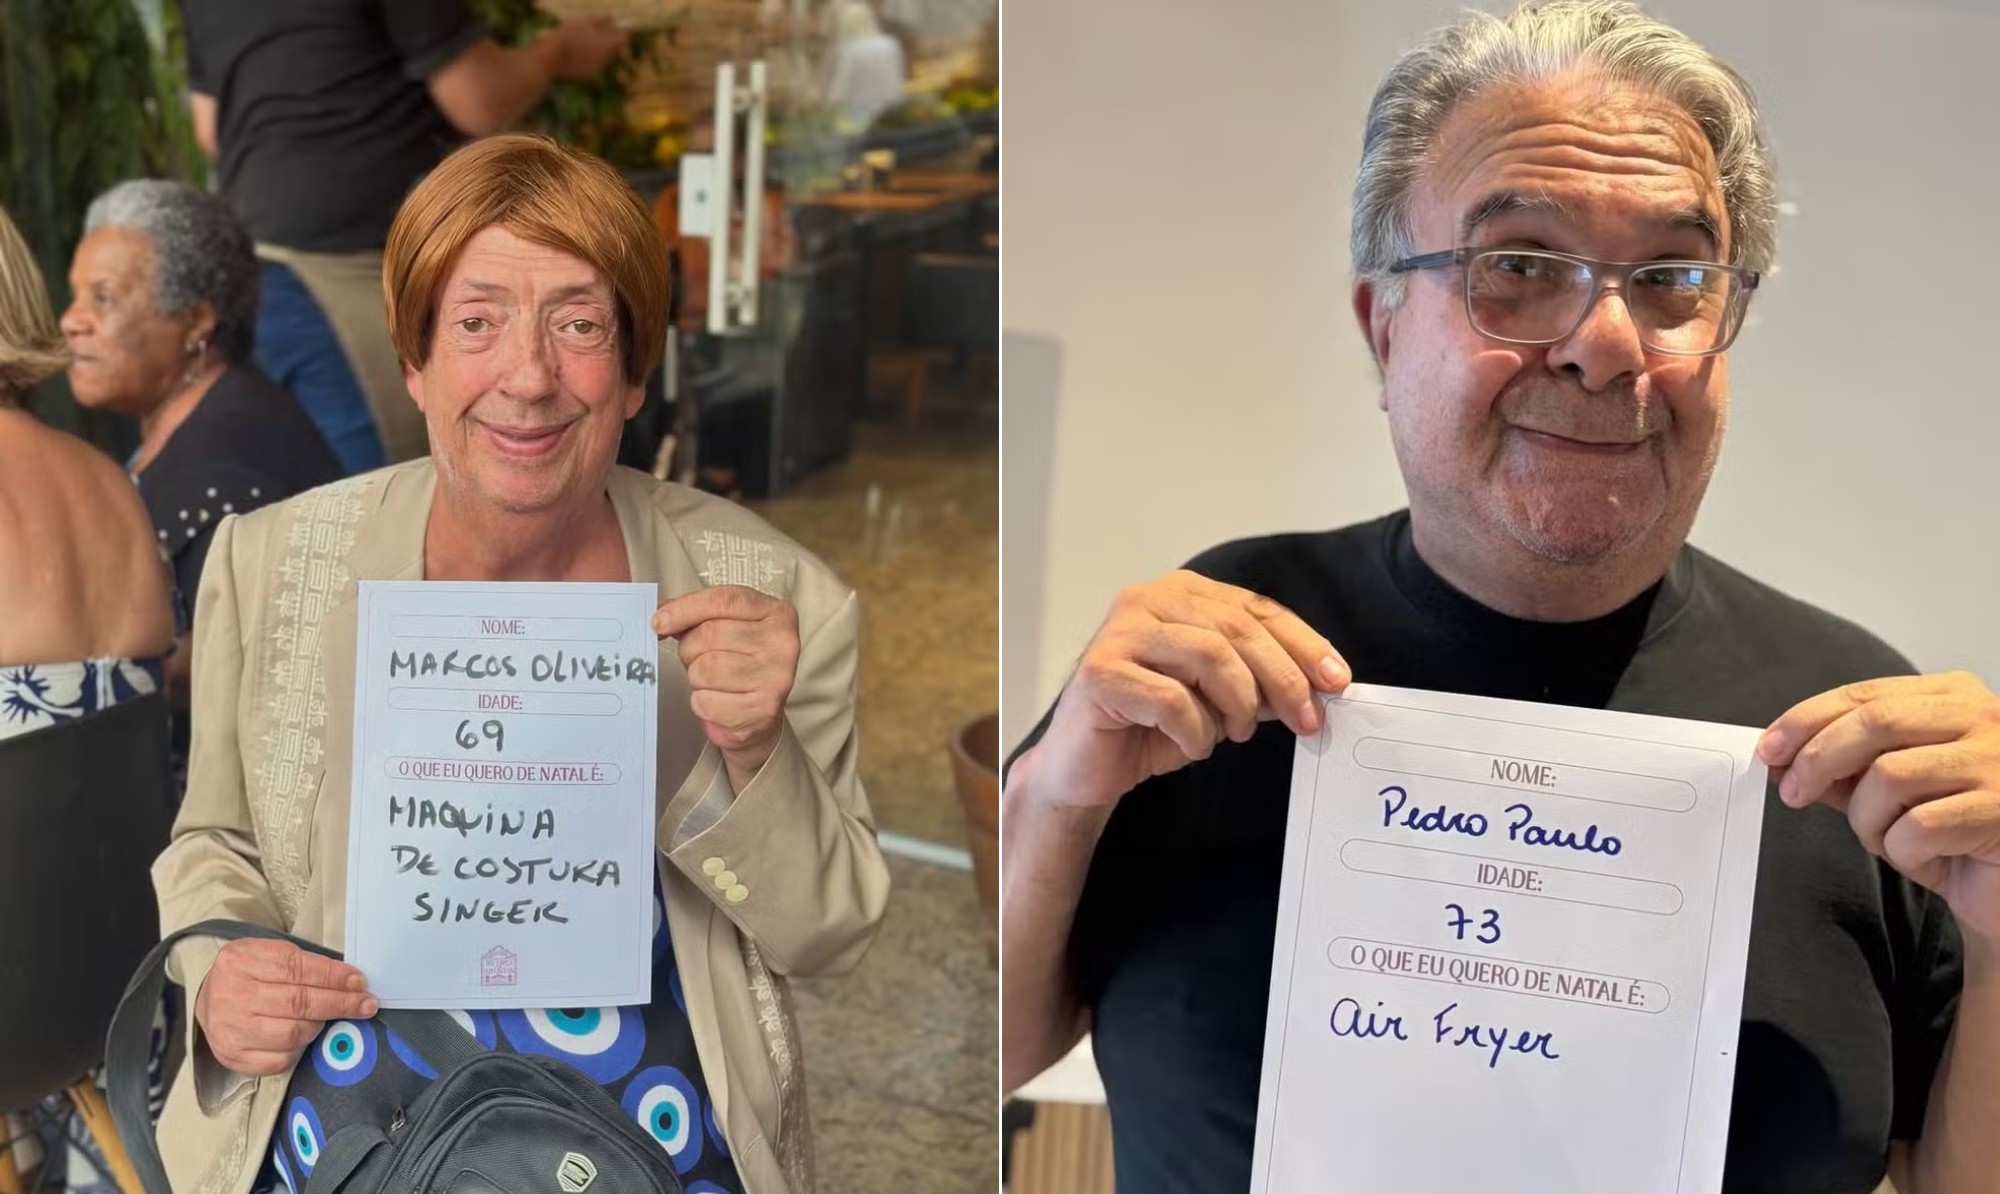 NOME:
MARCOS OLIVEIRA
IDADE:
69
O QUE EU QUERO DE NATAL É:
MAQUINA
DE COSTURA
SINGER
RETIRO
DOS
ARTISTAS
NOME:
Pedro Paulo
IDADE:
73
O QUE EU QUERO DE NATAL É:
Air Fryer